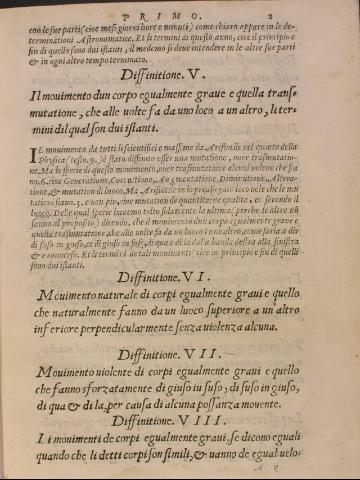 PRIMO. 2
con le sue parti (cioe mesi giorni hore e minuti) come chiaro appare in le de-
terminationi Astronomice. Et li termini di questo anno, cioe il principio e
fin di quello sono dui istanti, il medemo si deve intendere in le altre sue parti
& in ogni altro tempo terminato.
Diffinitione. V.
Il movimento dun corpo egualmente grave e quella trans-
mutatione, che alle volte fa da uno loco a un altro, li ter-
mini dil qual son dui istanti.
IL movimento da tutti li scientifici e massime da Aristotile nel quinto della
Physica (testo. 9.) è stato diffinito esser una mutatione, over trasmutatio-
ne. Ma le specie di questo movimento, over trasmutatione alcuni voleno che sia
no. 6. cioe Generatione, Corottione, Augmentatione, Diminutione, Altera-
tione, & mutation di luoco. Ma Aristotile in lo preallegato loco vole che le mu
tationi siano. 3. e non piu, cioe mutation de quantità, e e qualità, et secondo il
luoco. Delle qual specie havemo tolto solamente la ultima (perche le altre nõ
fanno al proposito) dicendo, che il movimento dun corpo egualmente grave e
quella trasmutatione, che alle volte fa da un luoco a uno altro, cioe saria a dir
di suso in giuso, et di giuso in suso, di qua e di la dalla banda destra alla sinistra
& e converso. Et li termini de tali movimenti cioe in principio e fin di quelli
sono dui istanti.
Diffinitione. VI.
Movimento naturale di corpi egualmente gravi e quello
che naturalmente fanno da un luoco superiore a un altro
inferiore perpendicularmente senza violenza alcuna.
Diffinitione. VII.
Movimento violente di corpi egualmente gravi e quello
che fanno sforzatamente di giuso in suso, di suso in giuso,
di qua & di la, per causa di alcuna possanza movente.
Diffinitione. VIII.
Li movimenti de corpi egualmente gravi, se dicono eguali
quando che li detti corpi son simili, & vanno de egual velo-
A ij